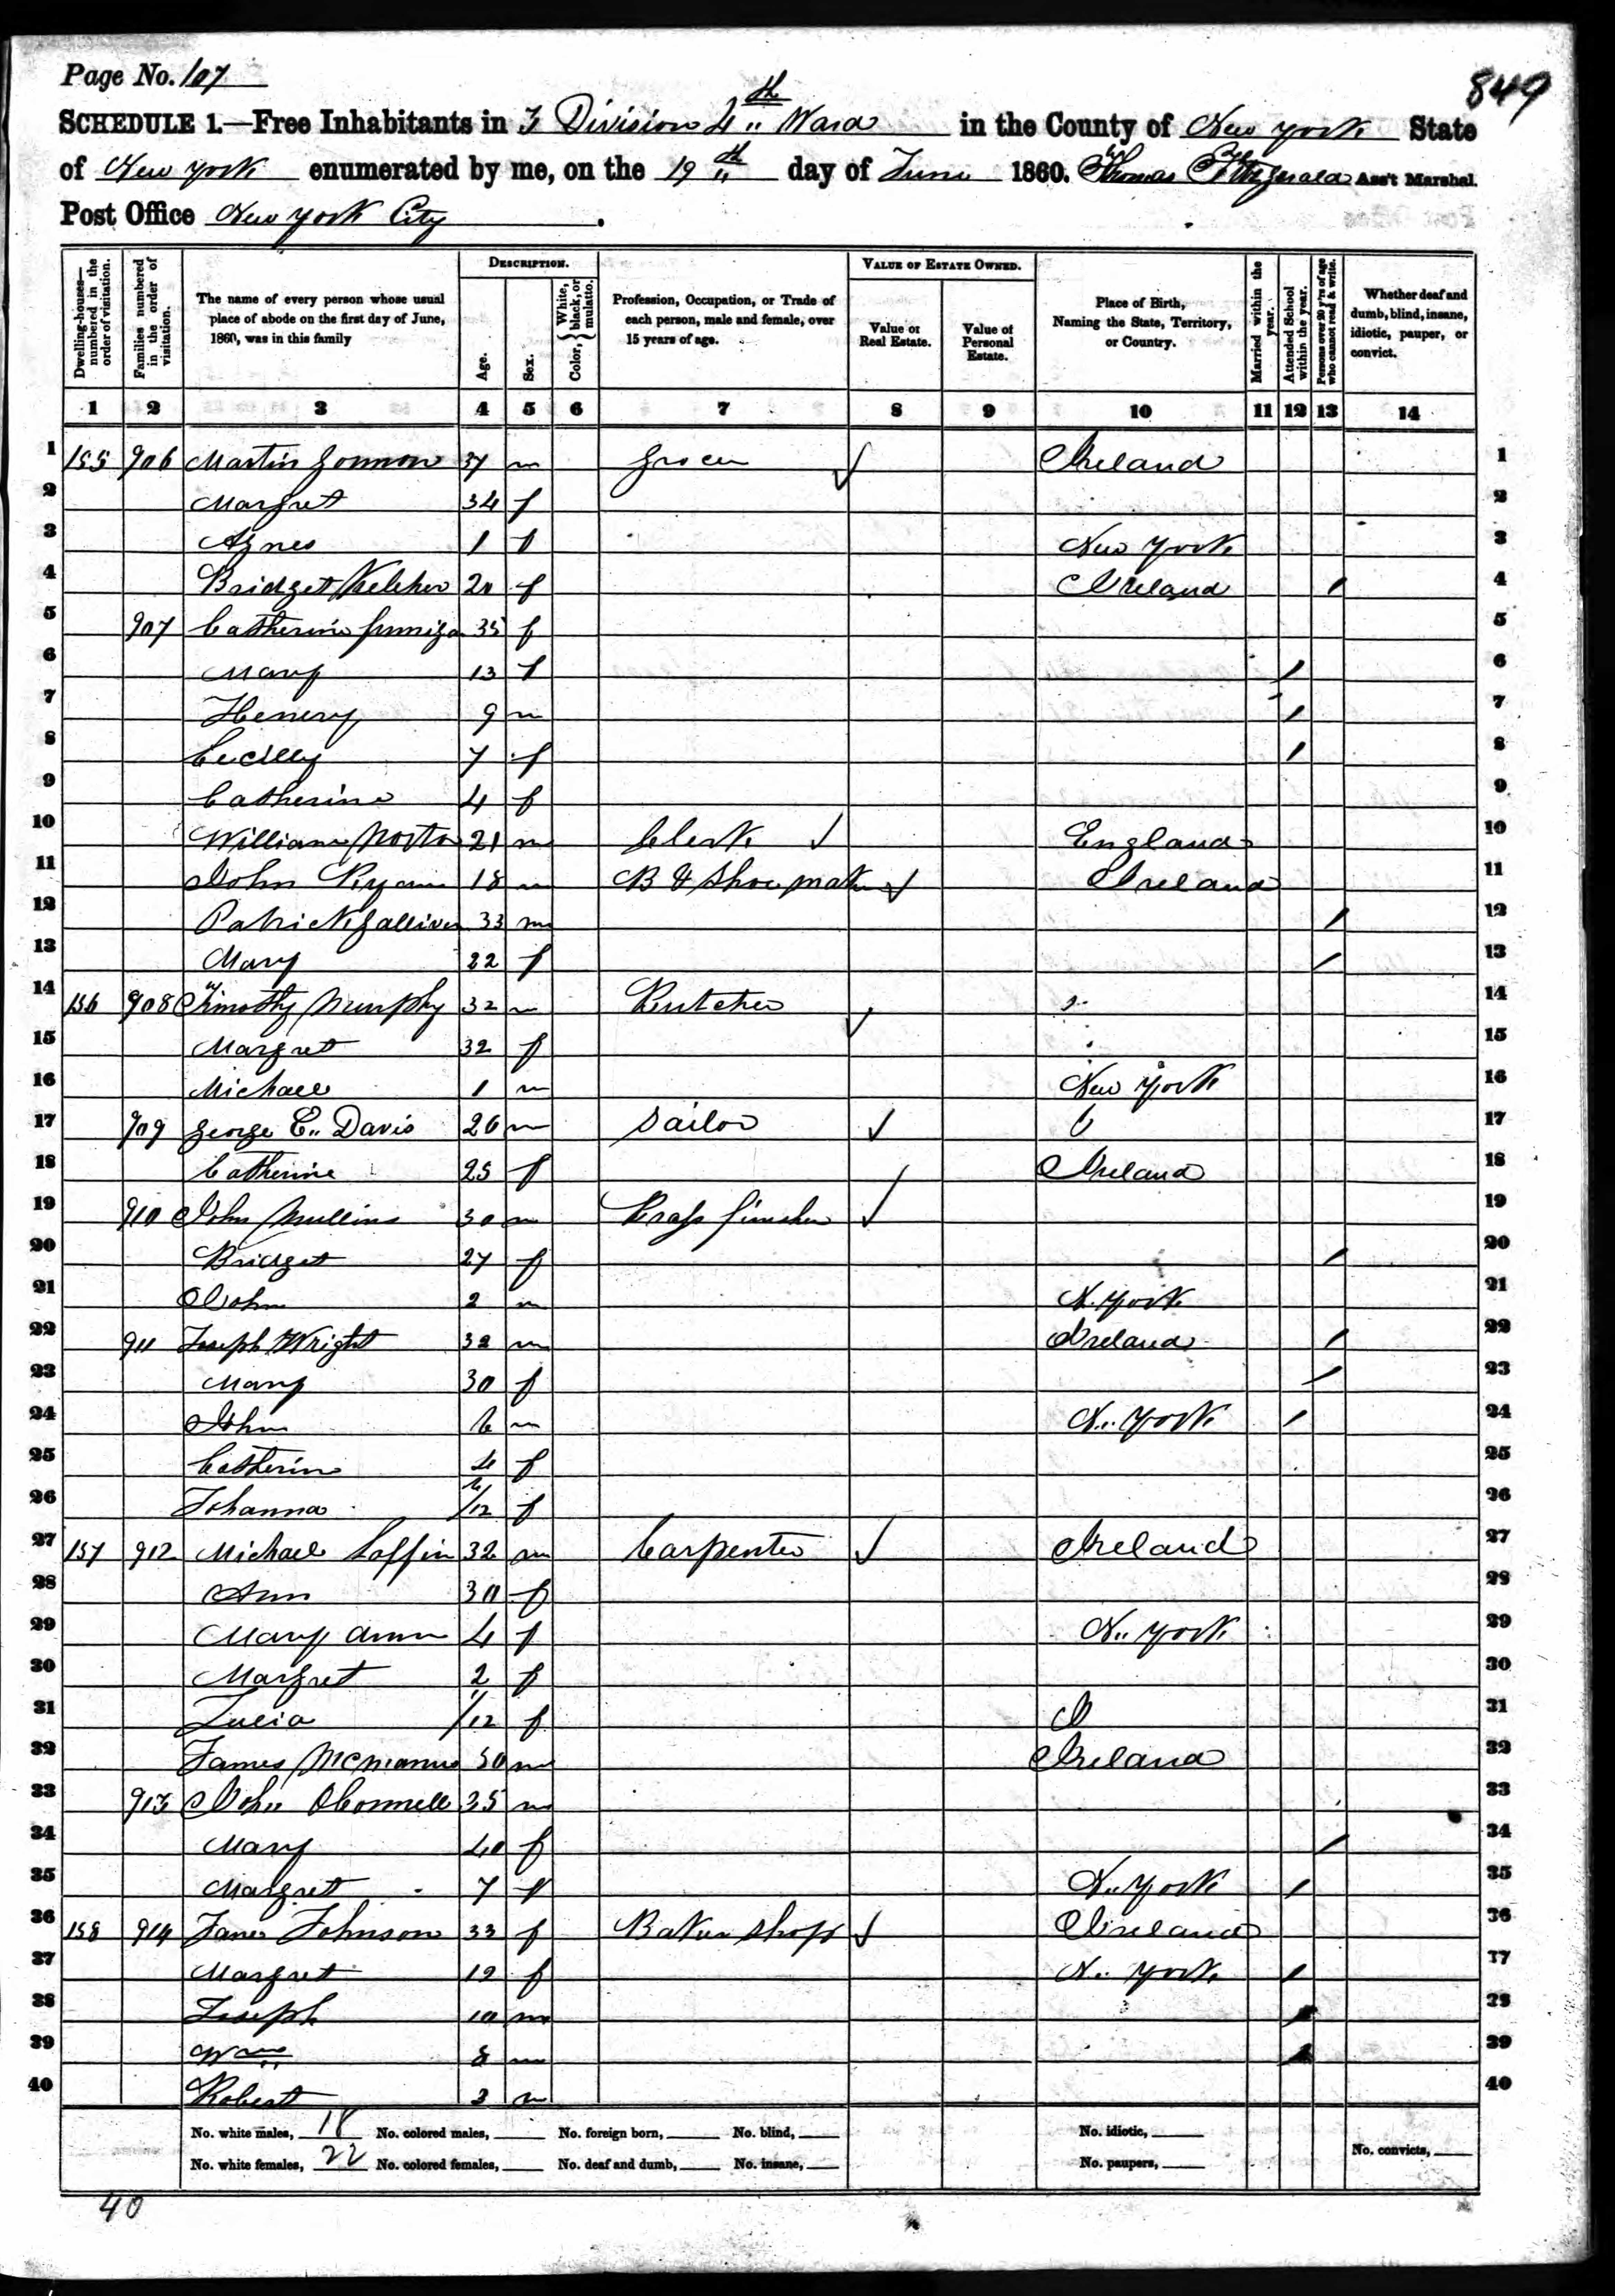 Page No. 107
849
SCHEDULE 1.—Free Inhabitants in 3 Division 4th Ward in the County of New York State
of New York enumerated by me, on the 19th day of June 1860. Thomas Fitzgerald Ass't Marshal.
Post Office New York City .
Dwelling-houses—numbered in the order of visitation.
Families numbered in the order of visitation.
The name of every person whose usual place of abode on the first day of June, 1860, was in this family
DESCRIPTION.
Age.
Sex.
Color, { White, black, or mulatto.
Profession, Occupation, or Trade of each person, male and female, over 15 years of age.
VALUE OF ESTATE OWNED.
Value of Real Estate.
Value of Personal Estate.
Place of Birth, Naming the State, Territory, or Country.
Married within the year.
Attended School within the year.
Persons over 20 y'rs of age who cannot read & write.
Whether deaf and dumb, blind, insane, idiotic, pauper, or convict.
1 2 3 4 5 6 7 8 9 10 11 12 13 14
1 155 906 Martin 37 m Grocer Ireland 1
2 Margret 34 f 2
3 Agnes 1 f New York 3
4 Bridget Keleher 20 f Ireland / 4
5 907 Catherine 35 f 5
6 Mary 13 f / 6
7 Henery 9 m / 7
8 Cecilly 7 f / 8
9 Catherine 4 f 9
10 William Norton 21 m Clerk England 10
11 John Ryann 18 m B & Shoe maker Ireland 11
12 Patrick Gallivan 33 m / 12
13 Mary 22 f / 13
14 156 908 Timothy Murphy 32 m Butcher 14
15 Margret 32 f 15
16 Michael 1 m New York 16
17 909 George E. Davis 26 m Sailor 17
18 Catherine 25 f Ireland 18
19 910 John Mullins 30 m Brass finisher 19
20 Bridget 27 f / 20
21 John 2 m N. York 21
22 911 Joseph Wright 32 m Ireland / 22
23 Mary 30 f / 23
24 John 6 m N. York / 24
25 Catherine 4 f 25
26 Johanna /12 f 26
27 157 912 Michael Laffin 32 m Carpenter Ireland 27
28 Ann 30 f 28
29 Mary Ann 4 f N. York 29
30 Margret 2 f 30
31 Lucia /12 f 31
32 James McManus 50 m Ireland 32
33 913 John OConnell 35 m 33
34 Mary 40 f / 34
35 Margret 7 f N. York / 35
36 158 914 Jane Johnson 33 f Baker Shop Ireland 36
37 Margret 12 f N. York / 37
38 Joseph 10 m / 38
39 Wm 8 m / 39
40 Robert 3 m 40
No. white males, 18 No. colored males, No. foreign born, No. blind, No. idiotic,
No. white females, 22 No. colored females, No. deaf and dumb, No. insane, No. paupers, No. convicts,
40